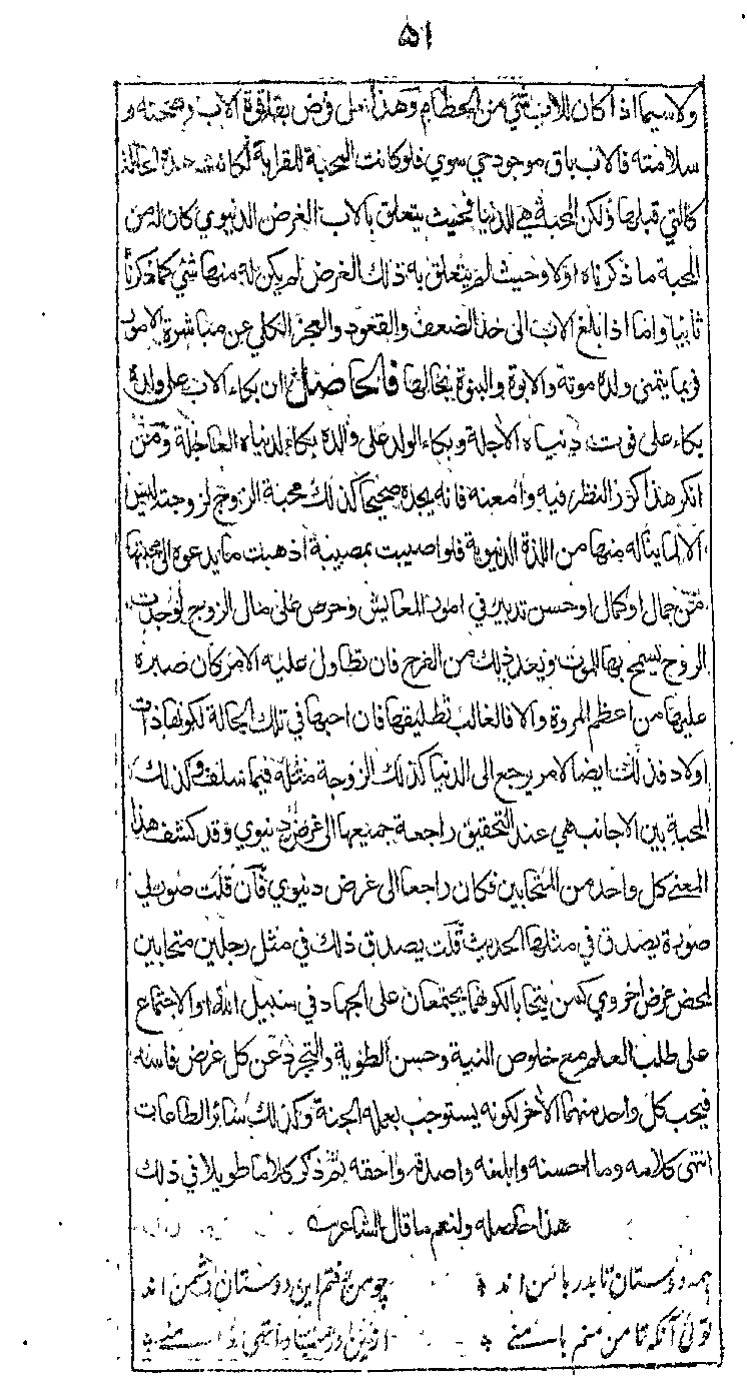 ۵۱
ولاسيما اذا كان للاب شئ من الحطام وهذا على فرض بقاء قوة الاب وصحته و
سلامته فالاب باق موجود حي سوي فلو كانت المحبة للقرابة لكانت هذه الحالة
كالتي قبلها ولكن المحبة هي للدنيا فحيث يتعلق بالاب الغرض الدنيوي كان له من
المحبة ما ذكرناه اولا وحيث لم يتعلق به ذلك الغرض لم يكن له منها شئ كما ذكرنا
ثانيا واما اذا بلغ الاب الى حد الضعف والقعود والعجز الكلي عن مباشرة الامور
فربما يتمنى ولده موته والابوة والبنوة بحالها فالحاصل ان بكاء الاب على ولده
بكاء على فوت دنياه الآجلة وبكاء الولد على والده بكاء لدنياه العاجلة ومن
انكر هذا كرر النظر فيه وامعنه فانه يجده صحيحا كذلك محبة الزوج لزوجته ليس
الا لما يناله منها من اللذة الدنيوية فلو اصيبت بمصيبة اذهبت ما يدعوه الى محبتها
من جمال او كمال او حسن تدبير في امور المعايش وحرص على مال الزوج لوجدت
الزوج يسمح بها للموت ويعد ذلك من الفرج فان تطاول عليه الامر كان صبره
عليها من اعظم المروة والا فالغالب تطليقها فان احبها في تلك الحالة لكونها ذات
اولاد فذلك ايضا الامر يرجع الى الدنيا كذلك الزوجة مثله فيما سلف وكذلك
المحبة بين الاجانب هي عند التحقيق راجعة جميعها الى غرض دنيوي وقد كشف هذا
المعنى كل واحد من المتحابين فكان راجعا الى غرض دنيوي فان قلت صور لي
صورة يصدق في مثلها الحديث قلت يصدق ذلك في مثل رجلين متحابين
لمحض غرض اخروي كمن يتحابا لكونهما يجتمعان على الجهاد في سبيل الله او الاجتماع
على طلب العلم مع خلوص النية وحسن الطوية والتجرد عن كل غرض فاسد
فيحب كل واحد منهما الآخر لكونه يستوجب بعمله الجنة وكذلك سائر الطاعات
انتهى كلامه وما احسنه وابلغه واصدقه واحقه ثم ذكر كلاما طويلا في ذلك
هذا حاصله ولنعم ما قال الشاعر
همه دوستان تا بدر با من اند چو من رفتم این دوستان دشمن اند
توئی آنکه تا من منم با منی